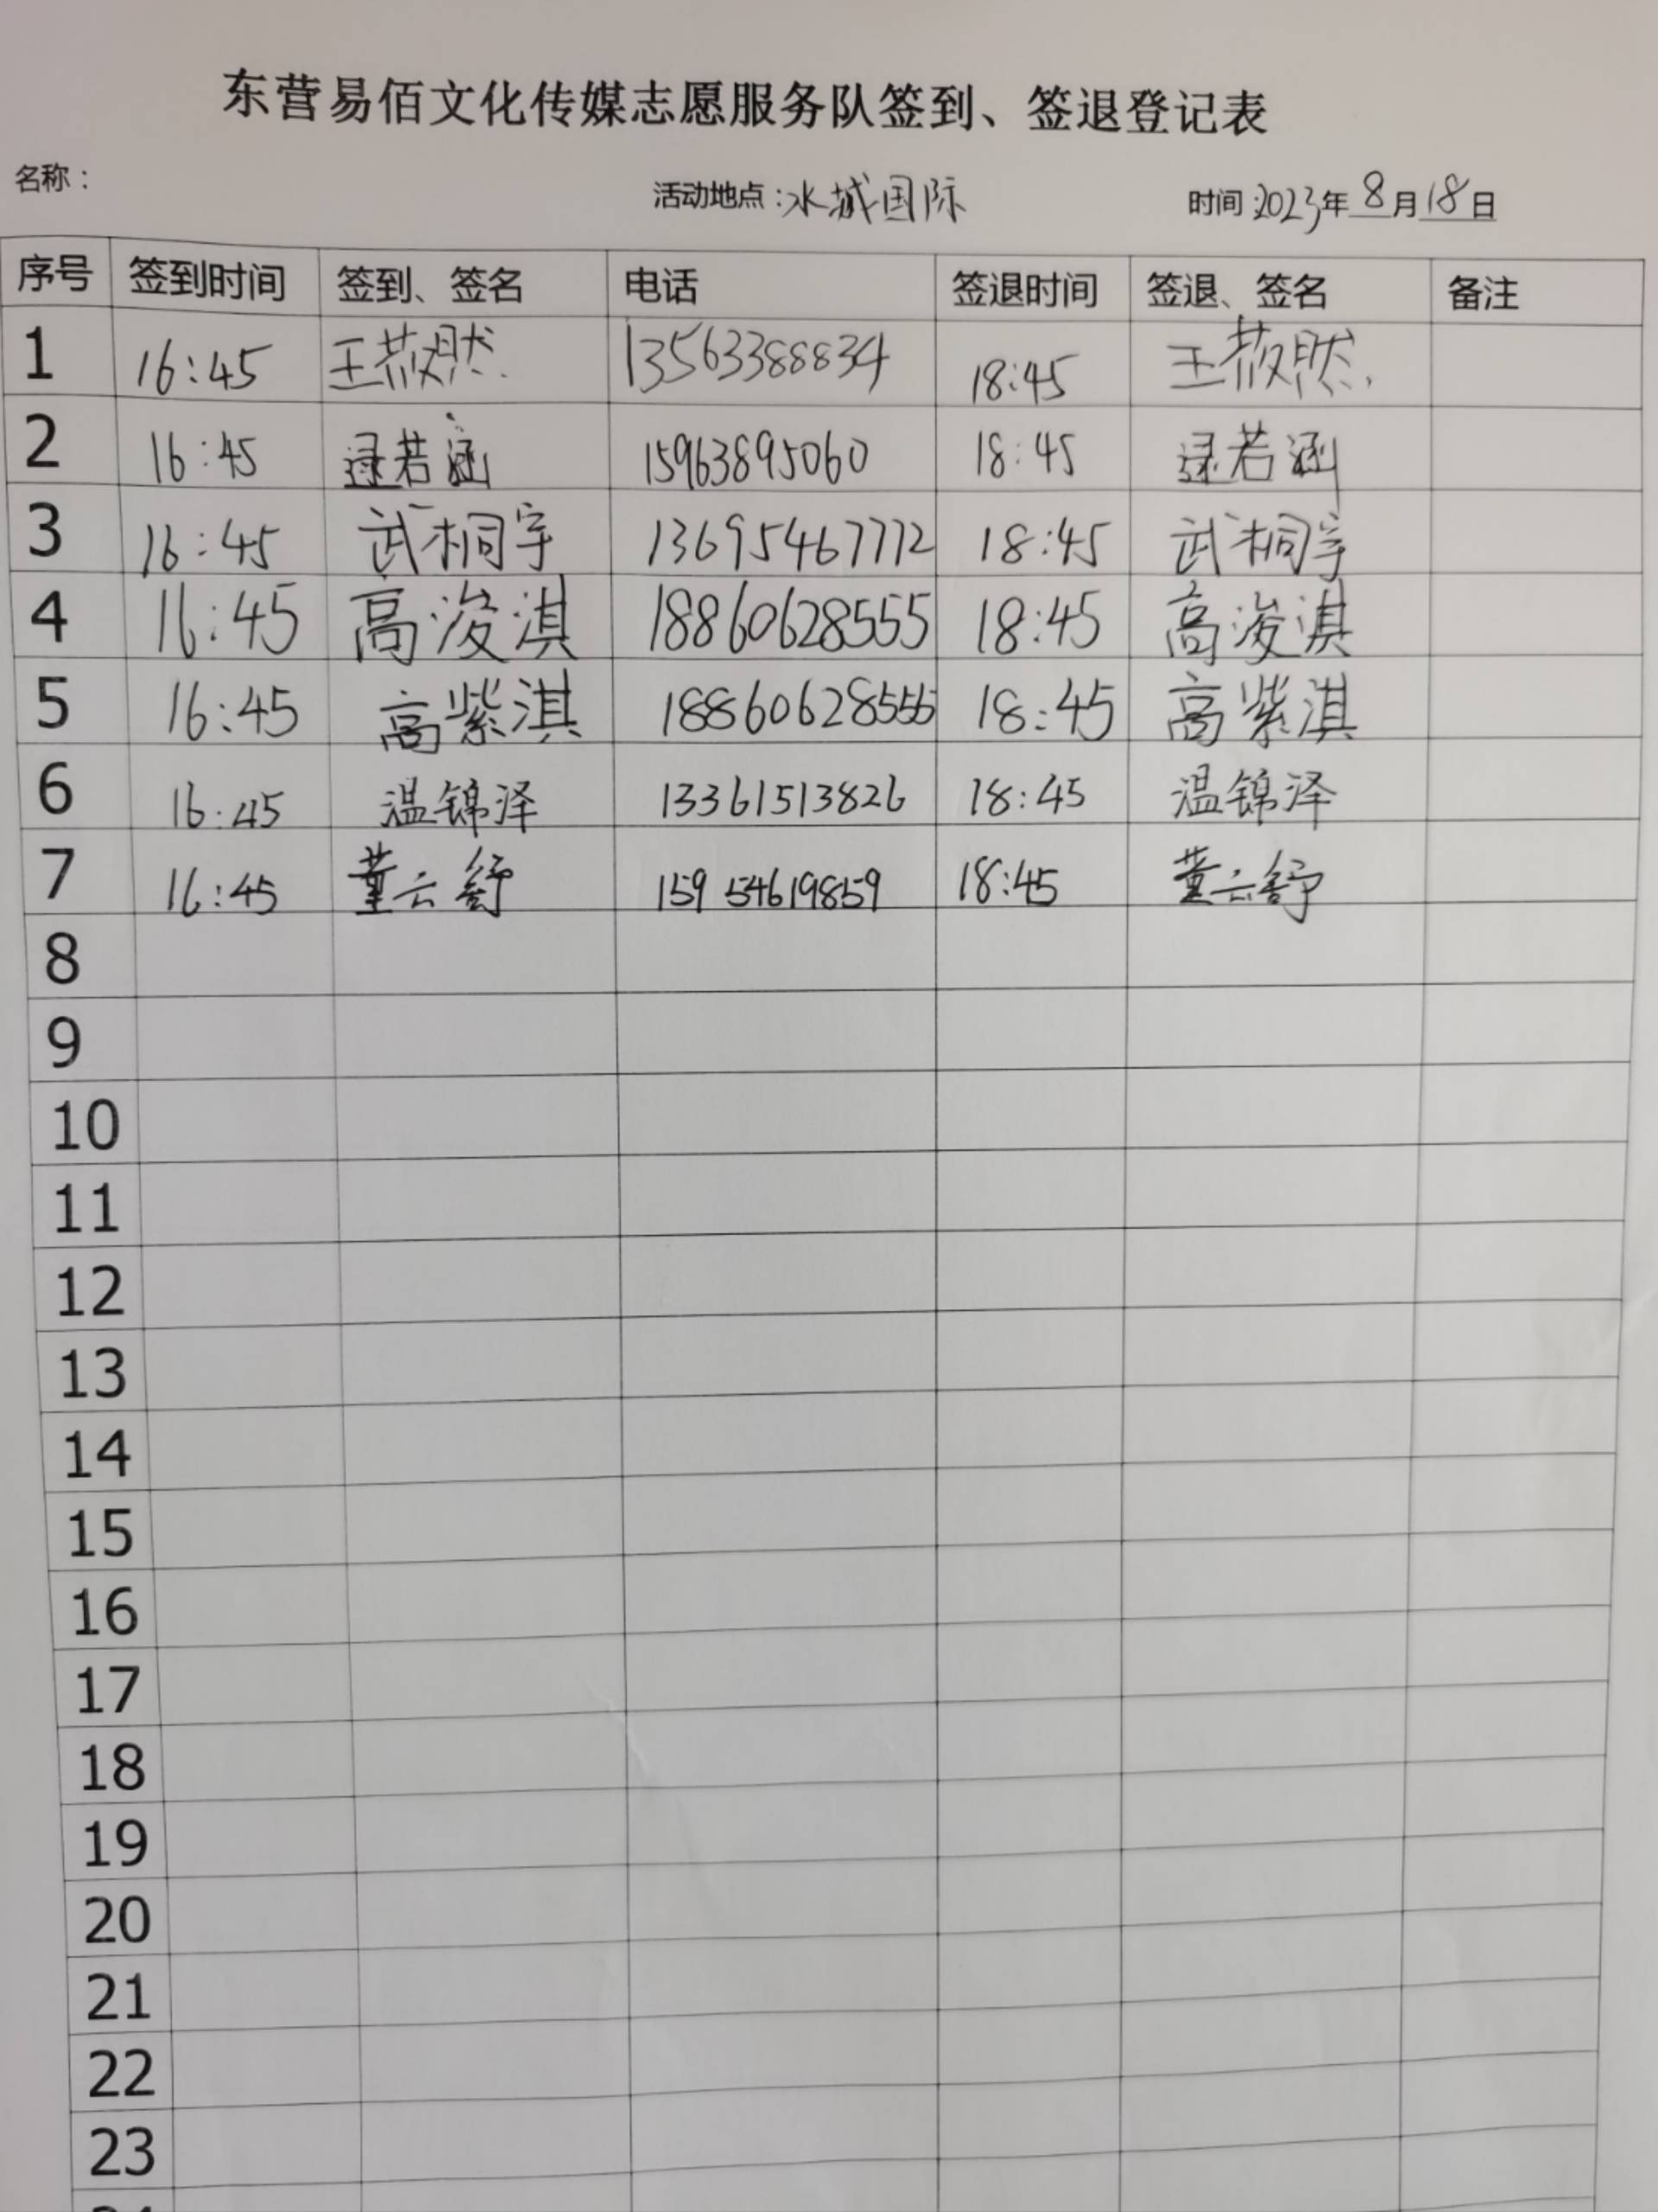 东营易佰文化传媒志愿服务队签到、签退登记表
名称： 活动地点：水城国际 时间：2023年8月18日
序号 签到时间 签到、签名 电话 签退时间 签退、签名 备注
1 16:45 王筱然 13563388834 18:45 王筱然
2 16:45 逯若涵 15963895060 18:45 逯若涵
3 16:45 武桐宇 13695467772 18:45 武桐宇
4 16:45 高浚淇 18860628555 18:45 高浚淇
5 16:45 高紫淇 18860628555 18:45 高紫淇
6 16:45 温锦泽 13361513826 18:45 温锦泽
7 16:45 董云舒 15954619859 18:45 董云舒
8
9
10
11
12
13
14
15
16
17
18
19
20
21
22
23